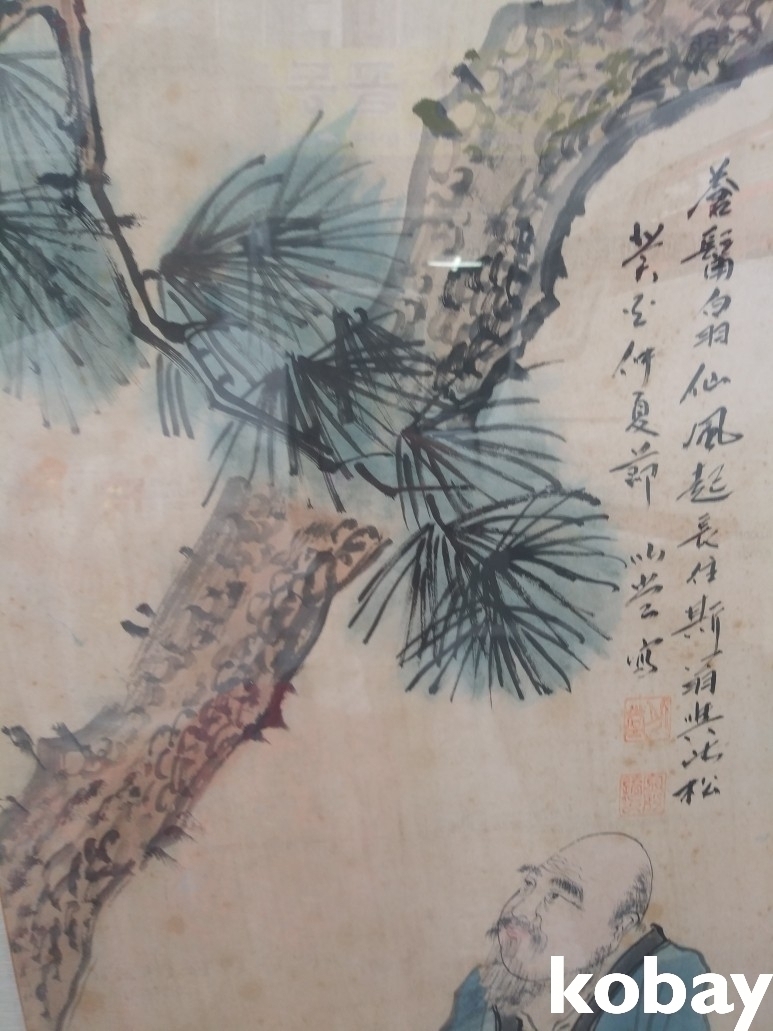 蒼髯白羽仙風起長住斯與此松
癸亥仲夏節 小堂寫
kobay